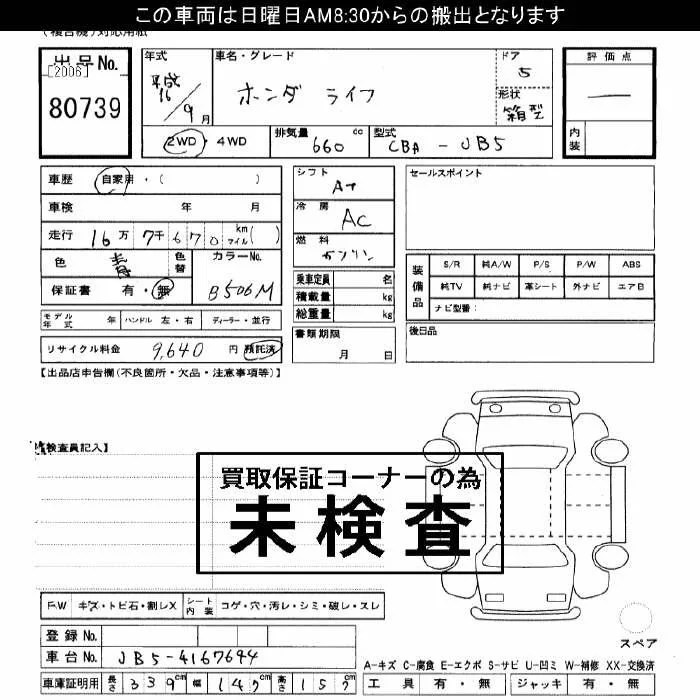 この車両は日曜日AM8:30からの搬出となります
(複合機)対応用紙
出品No.
[2006]
80739
年式
平成
16
9月
車名・グレード
ホンダ ライフ
ドア
5
形状
箱型
2WD・4WD
排気量 660 cc
型式 CBA - JB5
評価点
内装
車歴 自家用・( )
車検 年 月
走行 16万7千670 km マイル( )
色 青
色替
カラーNo.
B506M
保証書 有・無
モデル年式 年 ハンドル 左・右 ディーラー・並行
リサイクル料金 9,640 円 預託済
シフト
AT
冷房
AC
燃料
ガソリン
乗車定員 名
積載量 kg
総重量 kg
書類期限
月 日
セールスポイント
装備品
S/R 純A/W P/S P/W ABS
純TV 純ナビ 革シート 外ナビ エアB
ナビ型番:
後日品
【出品店申告欄(不良箇所・欠品・注意事項等)】
検査員記入】
買取保証コーナーの為
未検査
F.W キズ・トビ石・割レX
シート内装 コゲ・穴・汚レ・シミ・破レ・スレ
登録No.
車台No. JB5-4167644
車庫証明用 長さ 339cm 幅 147cm 高さ 157cm
スペア
A-キズ C-腐食 E-エクボ S-サビ U-凹ミ W-補修 XX-交換済
工具 有・無 ジャッキ 有・無